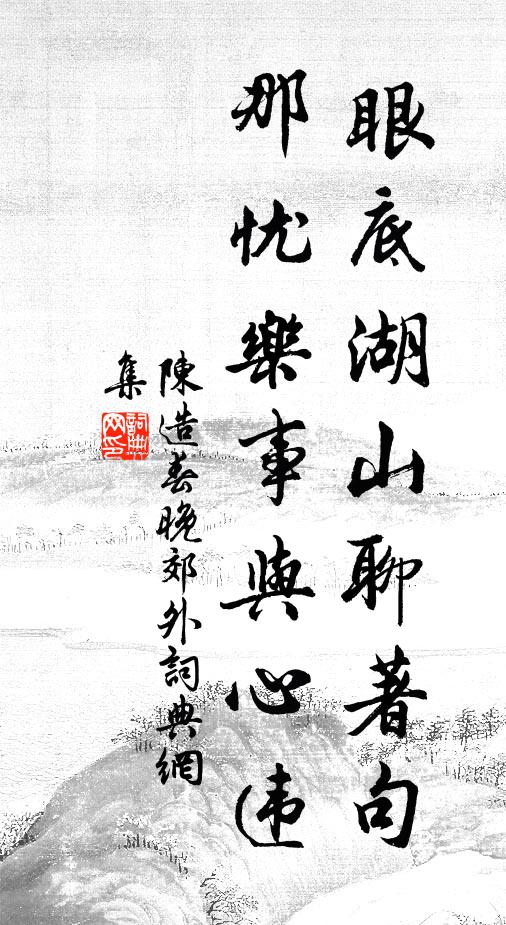 眼底湖山聊著句
那忧樂事與心违
陳造春晚郊外詞典網
集
詞典网印